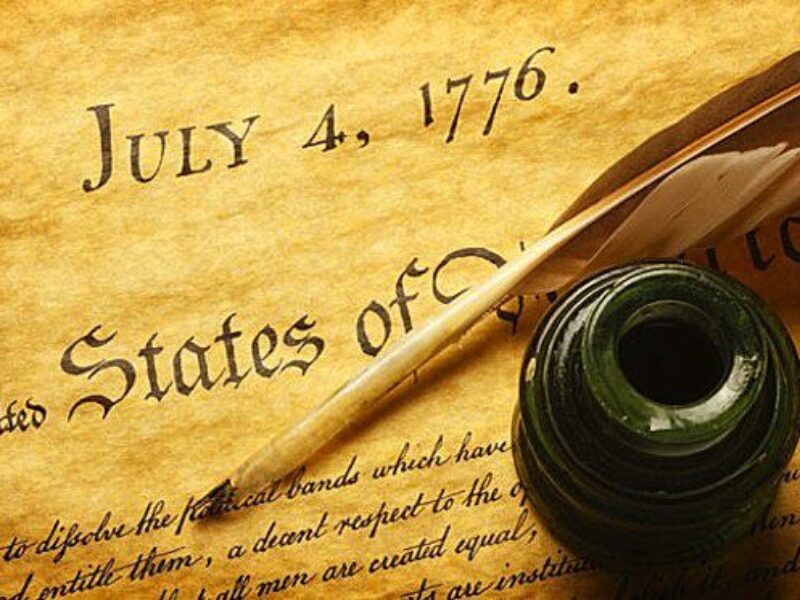 JULY 4, 1776.
States of
to diſsolve the political bands which have
entitle them, a decent respect to the
that all men are created equal,
are instituted